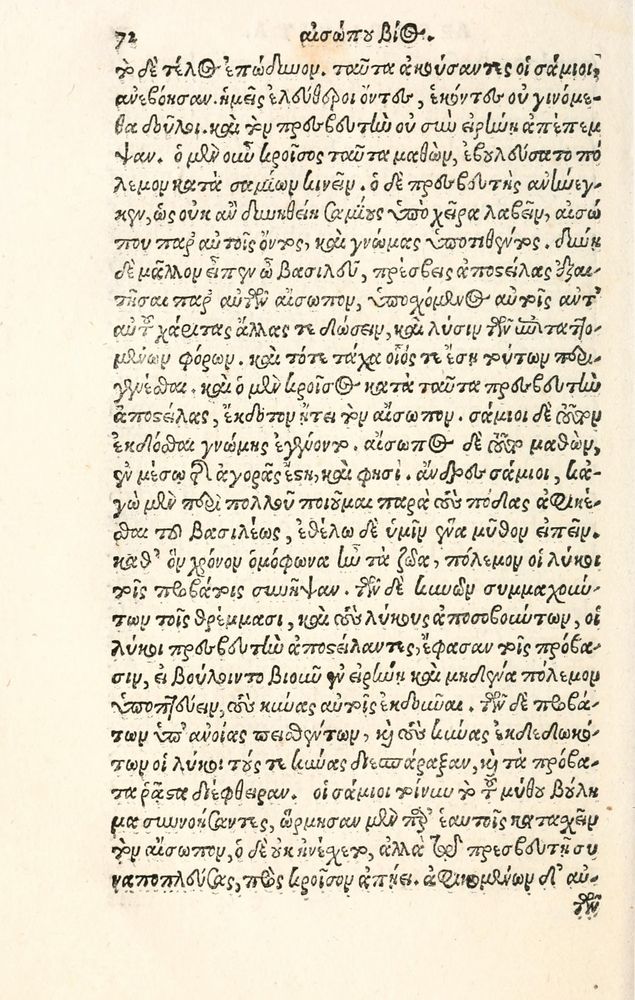 72 αἰσώπου βίος.
τὸ δὲ τέλος ἐπώδυνον. ταῦτα ἀκούσαντες οἱ σάμιοι,
ἀνεβόησαν. ἡμεῖς ἐλεύθεροι ὄντες, ἑκόντες οὐ γινόμε-
θα δοῦλοι. καὶ τὴν πρεσβευτὴν οὐ σὺν εἰρήνῃ ἀπέπεμ
ψαν. ὁ μὲν οὖν κροῖσος ταῦτα μαθὼν, ἐβουλεύσατο πό
λεμον κατὰ σαμίων κινεῖν. ὁ δὲ πρεσβευτὴς ἀνήνεγ-
κεν, ὡς οὐκ ἂν δυνηθείη σαμίους ὑπὸ χεῖρα λαβεῖν, αἰσώ
που παρ' αὐτοῖς ὄντος, καὶ γνώμας ὑποτιθέντος. δύνῃ
δὲ μᾶλλον εἶπεν ὦ βασιλεῦ, πρέσβεις ἀποστείλας ἐξαι-
τῆσαι παρ' αὐτῶν αἴσωπον, ὑποσχόμενος αὐτοῖς ἀντ'
αὐτοῦ χάριτας ἄλλας τε δώσειν, καὶ λύσιν τῶν ἐπιταττο-
μένων φόρων. καὶ τότε τάχα οἷός τε ἔσῃ τούτων περι-
γενέσθαι. καὶ ὁ μὲν κροῖσος κατὰ ταῦτα πρεσβευτὴν
ἀποστείλας, ἔκδοτον ᾔτει τὸν αἴσωπον. σάμιοι δὲ τοῦτον
ἐκδόσθαι γνώμης ἐγένοντο. αἴσωπος δὲ τοῦτο μαθὼν,
ἐν μέσῳ τῆς ἀγορᾶς ἔστη, καὶ φησί. ἄνδρες σάμιοι, κἀ-
γὼ μὲν περὶ πολλοῦ ποιοῦμαι παρὰ τοὺς πόδας ἀφικέ-
σθαι τοῦ βασιλέως, ἐθέλω δὲ ὑμῖν ἕνα μῦθον εἰπεῖν.
καθ' ὃν χρόνον ὁμόφωνα ἦν τὰ ζῶα, πόλεμον οἱ λύκοι
τοῖς προβάτοις συνῆψαν. τῶν δὲ κυνῶν συμμαχούν-
των τοῖς θρέμμασι, καὶ τοὺς λύκους ἀποσοβούντων, οἱ
λύκοι πρεσβευτὴν ἀποστείλαντες, ἔφασαν τοῖς πρόβα-
σιν, εἰ βούλοιντο βιοῦν ἐν εἰρήνῃ καὶ μηδένα πόλεμον
ὑποπτεύειν, τοὺς κύνας αὐτοῖς ἐκδοῦναι. τῶν δὲ προβά-
των ὑπ' ἀνοίας πεισθέντων, καὶ τοὺς κύνας ἐκδεδωκό-
των οἱ λύκοι τούς τε κύνας διεσπάραξαν, καὶ τὰ πρόβα-
τα ῥᾷστα διέφθειραν. οἱ σάμιοι τοίνυν τὸ τοῦ μύθου βούλη
μα συννοήσαντες, ὥρμησαν μὲν παρ' ἑαυτοῖς κατασχεῖν
τὸν αἴσωπον, ὁ δὲ οὐκ ἠνέσχετο, ἀλλὰ τῷ πρεσβευτῇ συ
ναποπλεύσας, πρὸς κροῖσον ἀπῄει. ἀφικομένων δ' αὐ-
τῶν